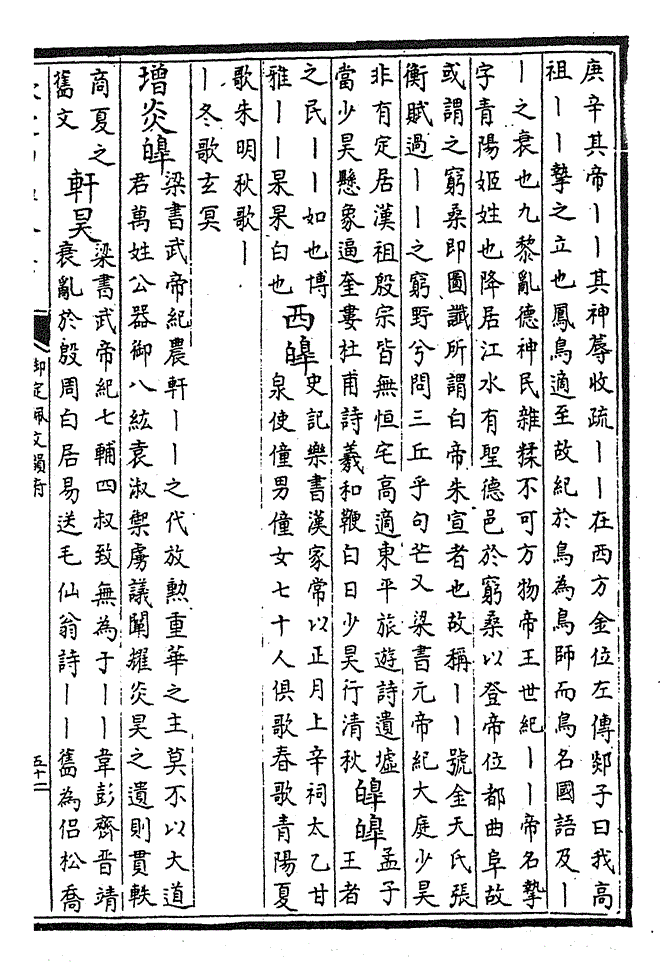 庚辛其帝丨丨其神蓐收疏丨丨在西方金位左傳郯子曰我高
祖丨丨摯之立也鳳鳥適至故紀於鳥為鳥師而鳥名國語及丨
丨之衰也九黎亂德神民雜糅不可方物帝王世紀丨丨帝名摯
字青陽姬姓也降居江水有聖德邑於窮桑以登帝位都曲阜故
或謂之窮桑即圖讖所謂白帝朱宣者也故稱丨丨號金天氏張
衡賦過丨丨之窮野兮問三丘乎句芒又梁書元帝紀大庭少昊
非有定居漢祖殷宗皆無恒宅高適東平旅遊詩遺墟
當少昊懸象逼奎婁杜甫詩羲和鞭白日少昊行清秋
皥皥
孟子
王者
之民丨丨如也博
雅丨丨杲杲白也
西皥
史記樂書漢家常以正月上辛祠太乙甘
泉使僮男僮女七十人俱歌春歌青陽夏
歌朱明秋歌丨
丨冬歌玄冥
增炎皥
梁書武帝紀農軒丨丨之代放勲重華之主莫不以大道
君萬姓公器御八紘袁淑禦虜議闡耀炎昊之遺則貫軼
商夏之
舊文
軒昊
梁書武帝紀七輔四叔致無為于丨丨韋彭齊晋靖
衰亂於殷周白居易送毛仙翁詩丨丨舊為侣松喬
御定佩文韻府
五十二